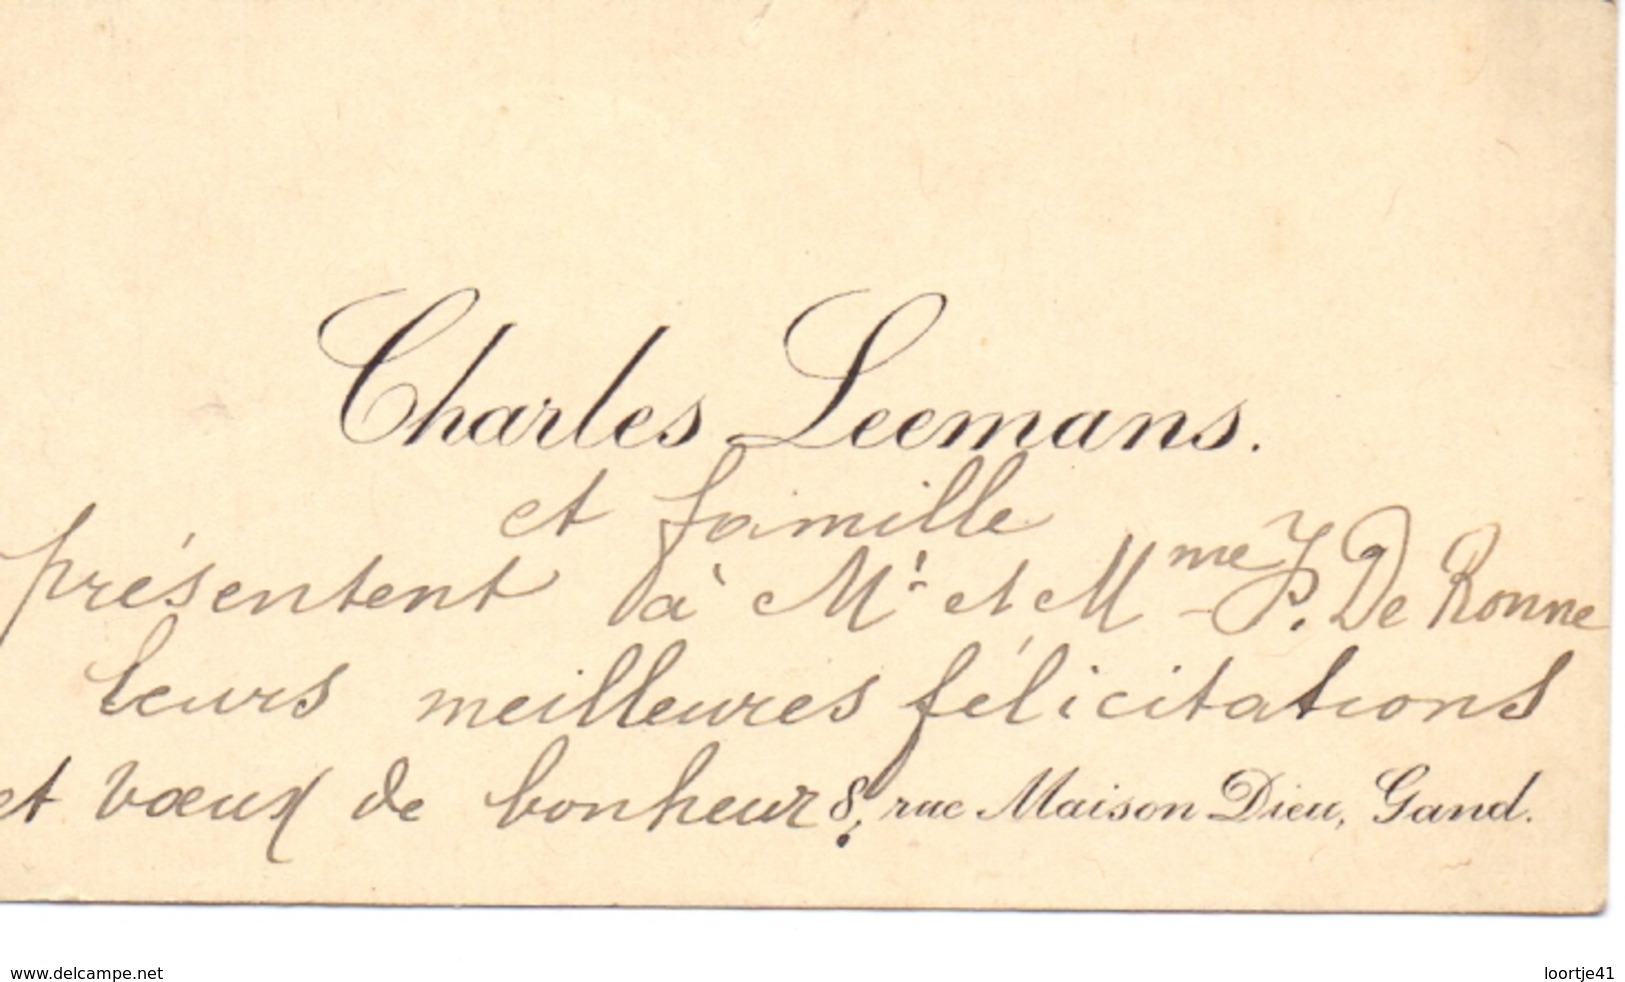 Charles Leemans.
et famille
présentent à Mr. et Mme J. De Ronne
leurs meilleures félicitations
et vœux de bonheur! 8, rue Maison Dieu, Gand.
www.delcampe.net loortje41